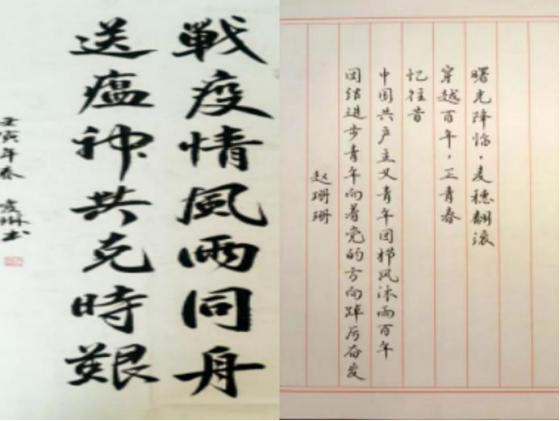 戰疫情風雨同舟
送瘟神共克時艱
壬寅年春
曙光降临，麦穗翻滚
穿越百年，正青春
忆往昔
中国共产主义青年团栉风沐雨百年
团结进步青年向着党的方向踔厉奋发
赵珊珊